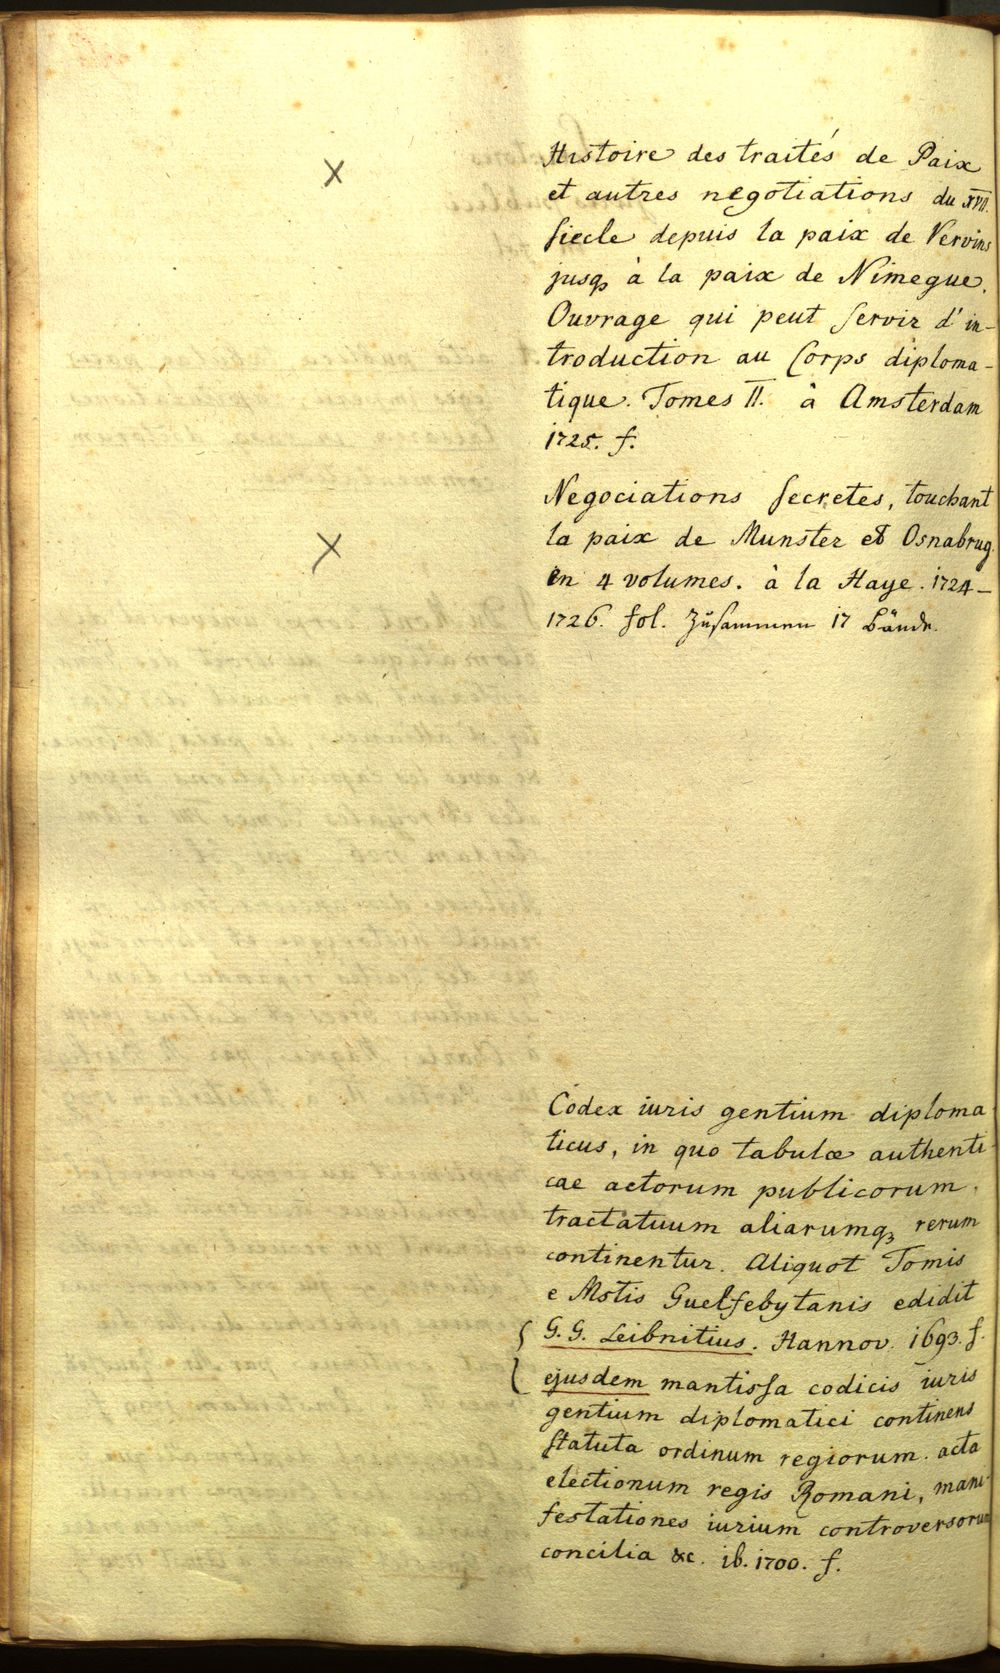 Histoire des traités de Paix
et autres negotiations du XVII.
siecle depuis la paix de Vervins
jusq à la paix de Nimegue.
Ouvrage qui peut servir d'in-
troduction au Corps diploma-
tique. Tomes II. à Amsterdam
1725. f.
Negociations secretes, touchant
la paix de Munster et Osnabrug.
en 4 volumes. à la Haye. 1724-
1726. fol. Zusammen 17 Bände.
Codex iuris gentium diploma
ticus, in quo tabulæ authenti
cae actorum publicorum,
tractatuum aliarumqꝫ rerum
continentur. Aliquot Tomis
e Mstis Guelfebytanis edidit
G. G. Leibnitius. Hannov. 1693. f.
ejusdem mantissa codicis iuris
gentium diplomatici continens
statuta ordinum regiorum. acta
electionum regis Romani, mani-
festationes iurium controversorum
concilia &c. ib. 1700. f.